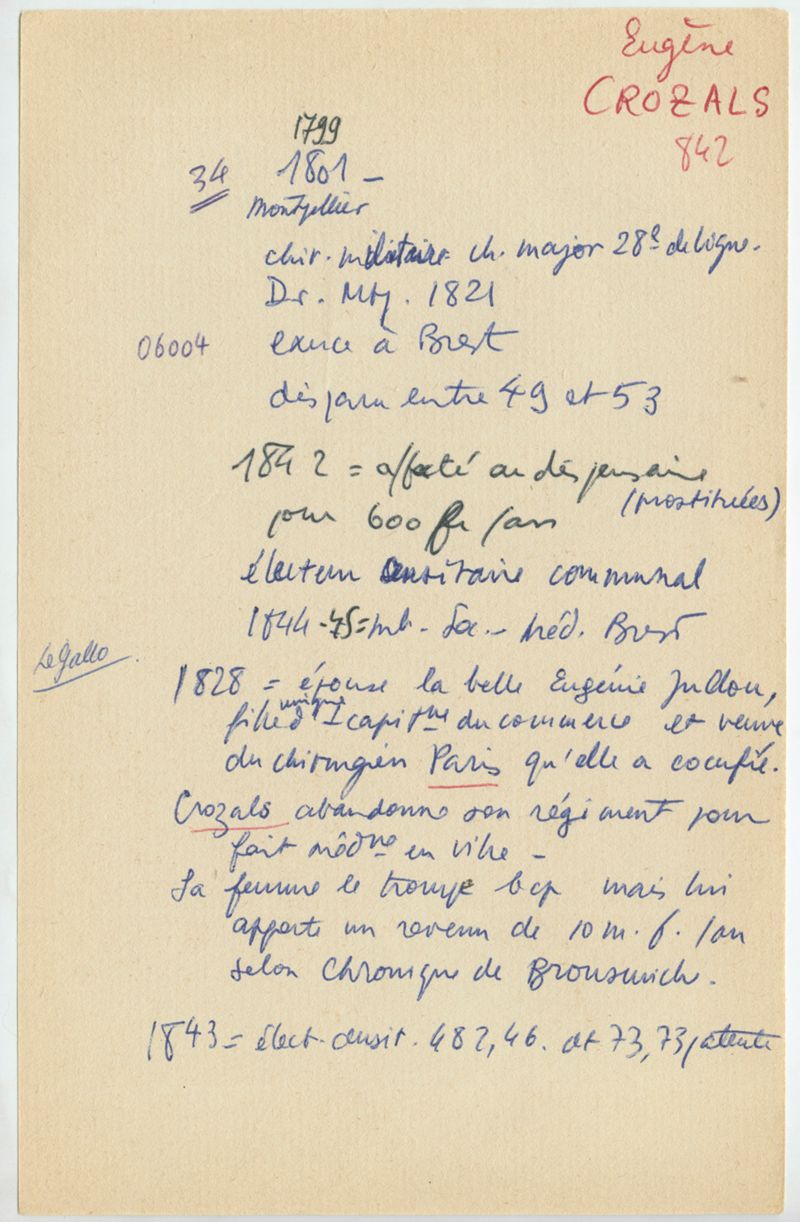 Eugène
CROZALS
842
1799
34 1801 -
Montpellier
chir. militaire ch. major 28e de ligne.
Dr. Mtp. 1821
06004 exerce à Brest
disparu entre 49 et 53
1842 = affecté au dispensaire
(prostituées)
pour 600 fr /an
électeur censitaire communal
1844-45 = mb. Soc. Méd. Brest
Le Gallo
1828 = épouse la belle Eugénie
unique
fille d'1 capitne du commerce et veuve
du chirurgien Paris qu'elle a cocufié.
Crozals abandonne son régiment pour
fait médne en ville -
Sa femme le trompe bcp mais lui
apporte un revenu de 10 m. f. /an
selon Chronique de Brounswick.
1843 = élect. censit. 482,46. dt 73,73 patente